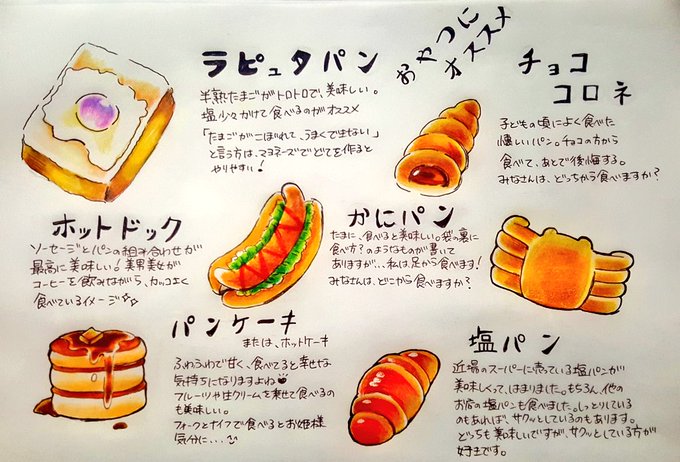 ラピュタパン
半熟たまごがトロトロで、美味しい。
塩少々かけて食べるのがオススメ
「たまごがこぼれて、うまくできない」
と言う方は、マヨネーズでどてを作ると
やりやすい!
おやつに
オススメ
チョコ
コロネ
子どもの頃によく食べた
懐しいパン。チョコの方から
食べて、あとで後悔する。
みなさんは、どっちから食べますか?
ホットドック
ソーセージとパンの組み合わせが
最高に美味しい。美男美女が
コーヒーを飲みながら、カッコよく
食べているイメージ☆☆
かにパン
たまに、食べると美味しい。袋の裏に
食べ方?のようなものが書いて
ありますが…私は、足から食べます!
みなさんは、どこから食べますか?
パンケーキ
または、ホットケーキ
ふわふわで甘く、食べてると幸せな
気持ちになりますよね
フルーツや生クリームを乗せて食べるの
も美味しい。
フォークとナイフで食べるとお姫様
気分に…
塩パン
近場のスーパーに売っている塩パンが
美味しくって、はまりました。もちろん、他の
お店の塩パンも食べました。しっとりしている
のもあれば、サクッとしているのもあります。
どっちも美味しいですが、サクッとしている方が
好きです。